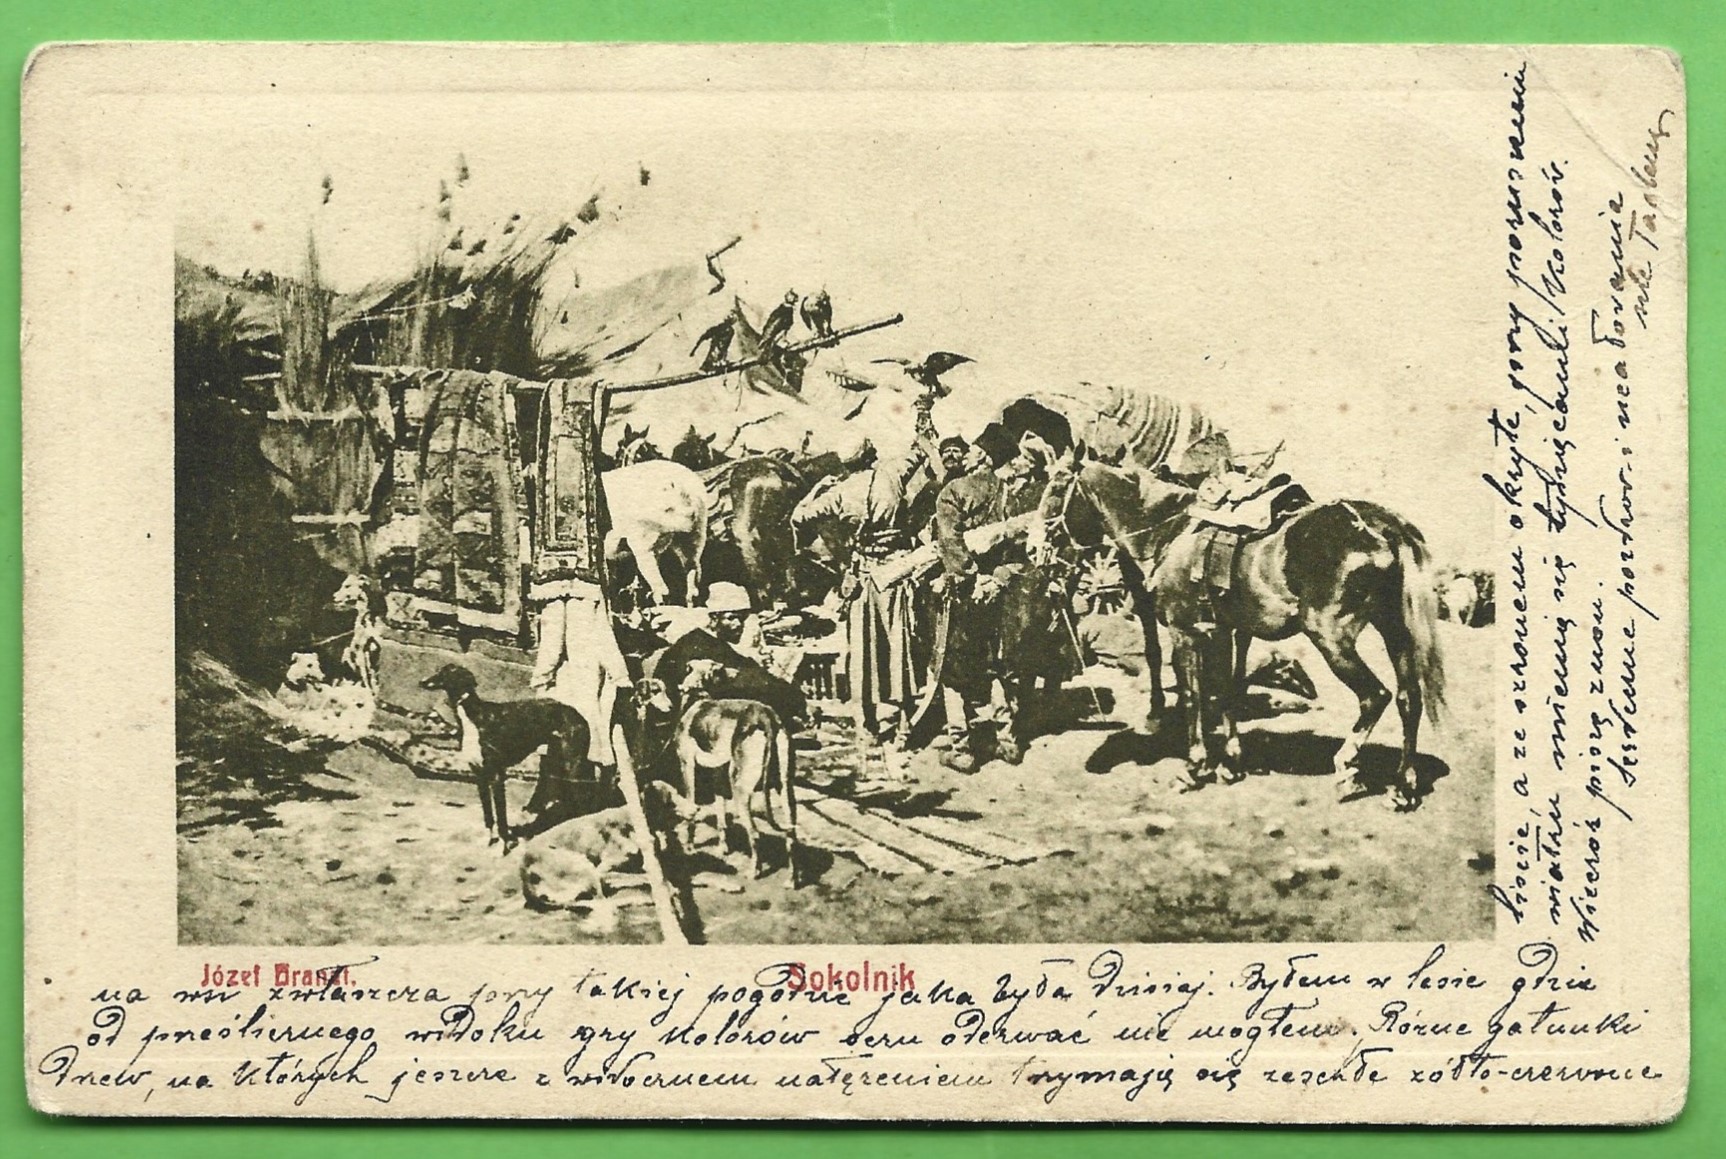 Józef Brandt.
Sokolnik
na wsi zwłaszcza przy takiej pogodzie jaka była dzisiaj. Byłem w lesie gdzie
od prześlicznego widoku gry kolorów oczu oderwać nie mogłem. Różne gatunki
drzew, na których jeszcze z widocznem natężeniem trzymają się zeschłe żółto-czerwone
liście, a ze szronem okryte, przy poruszeniu
wiatru mienią się tysiącami kolorów.
Wieczór piszę znów.
Serdeczne pozdrow. i ucałowania